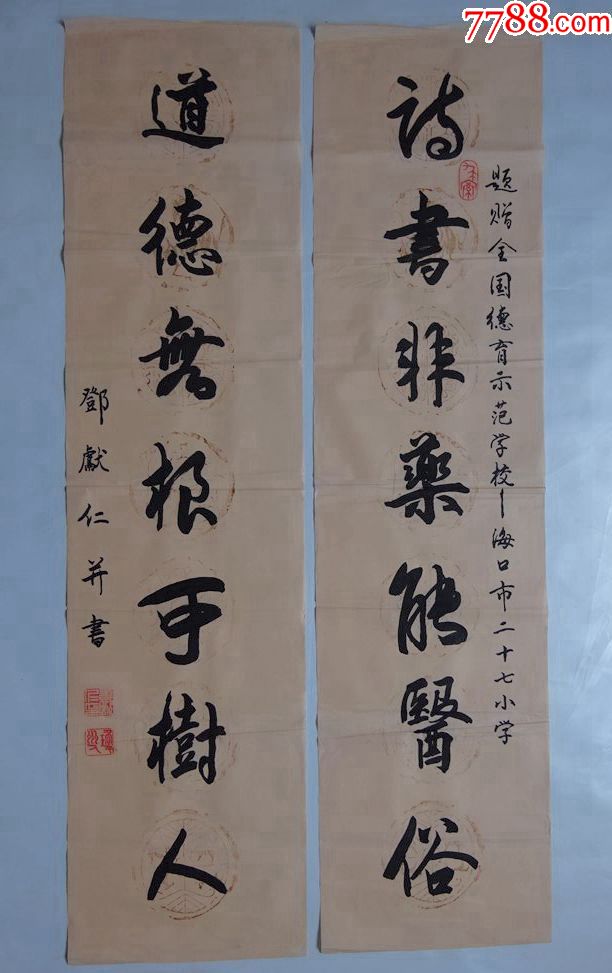 7788.com
题赠全国德育示范学校—海口市二十七小学
詩書非藥能醫俗
道德無根可樹人
鄧獻仁并書